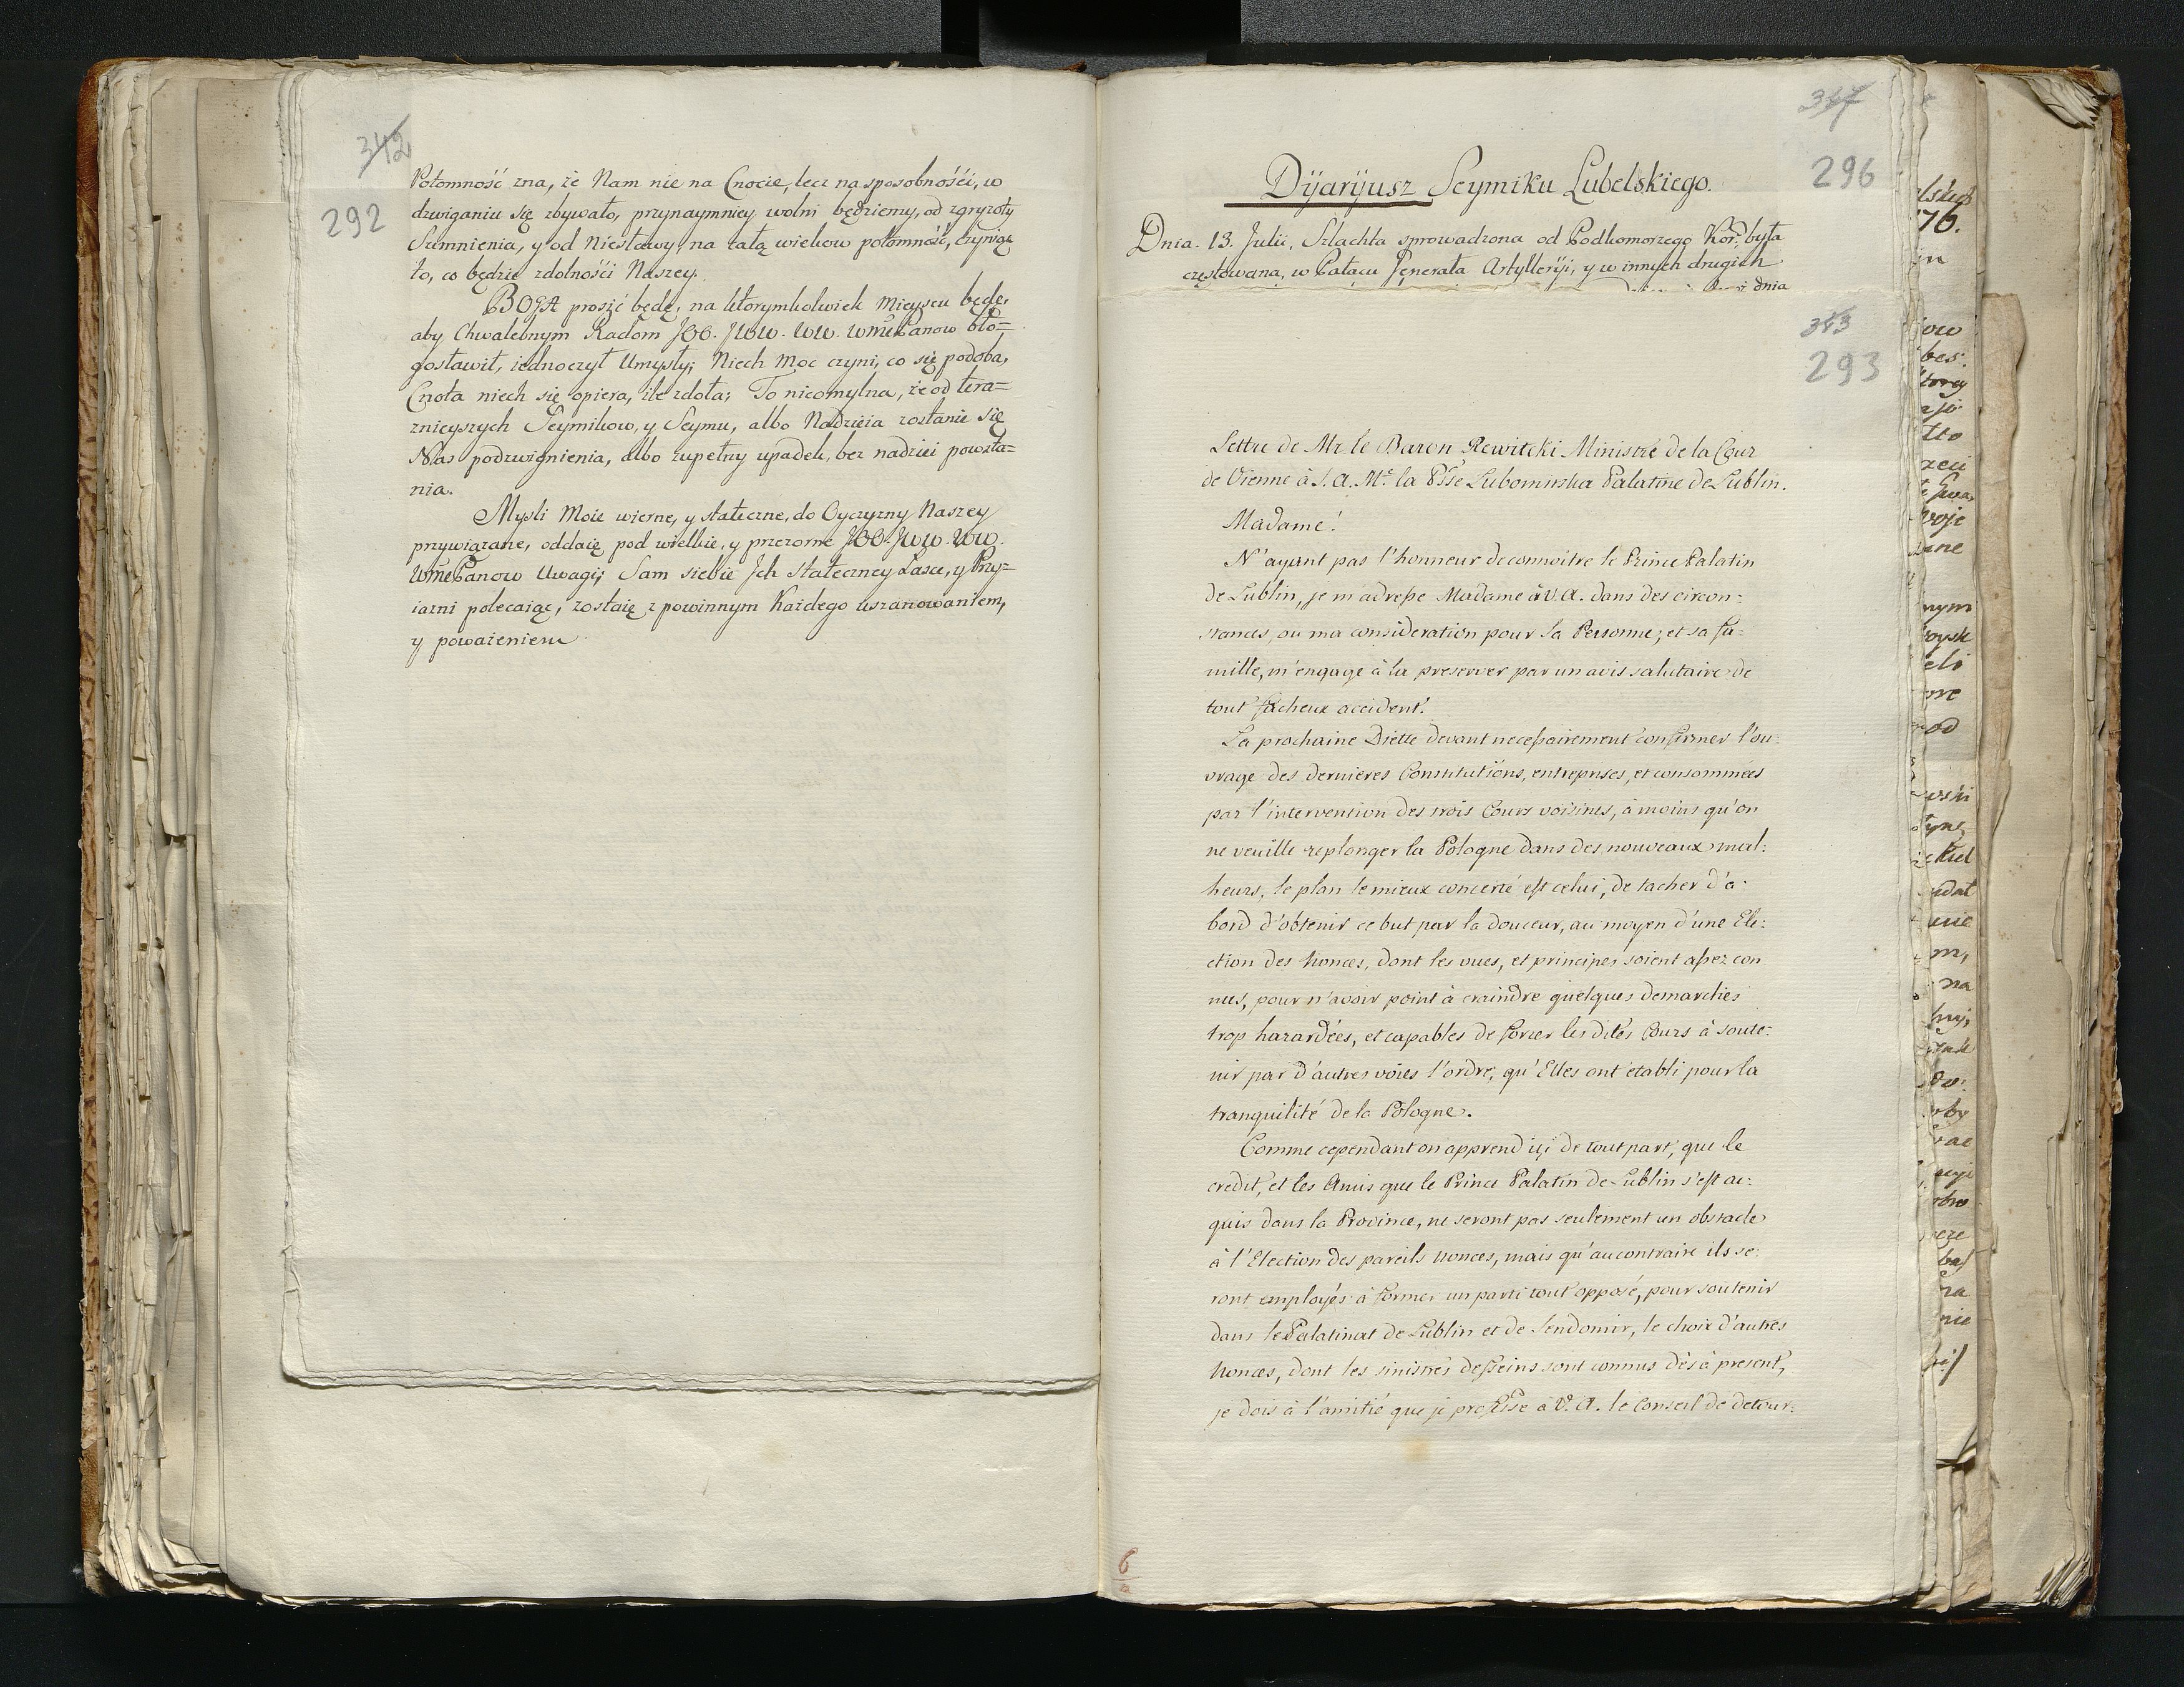 342
292
Potomność zna, że Nam nie na Cnocie, lecz na sposobnośći, w
dzwiganiu się zbywało, przynaymniey wolni będziemy, od zgryzoty
Sumnienia, y od Niesławy, na całą wiekow potomność, czyniąc
to, co będzie zdolnośći Naszey.
BOGA prosić będę, na ktorymkolwiek Mieyscu będę,
aby Chwalebnym Radom JOO. JWW. WW. WmċPanow bło=
gosławił, iednoczył Umysły; Niech Moc czyni, co się podoba,
Cnota niech się opiera, ile zdoła; To nieomylna, że od tera=
znieyszych Seymikow, y Seymu, albo Nadzieia zostanie się
Nas podzwignienia, albo zupełny upadek, bez nadziei powsta=
nia.
Mysli Moie wierne, y stateczne, do Oyczyzny Naszey
przywiązane, oddaię pod wielkie, y przezorne JOO. JWW. WW.
WmċPanow Uwagi; Sam siebie Jch stateczney Łasce, y Przy=
iazni polecaiąc, zostaię z powinnym Każdego uszanowaniem,
y poważeniem.
347
296
Dÿarÿusz Seymiku Lubelskiego.
Dnia. 13. Julii, Szlachta sprowadzona od Podkomorzego Kor: była
częstowana, w Pałacu Jenerała Artylleryi, y w innych drugich
dnia
343
293
Lettre de Mr. le Baron Rewitcki Ministre de la Cour
de Vienne à S. A. Me. la Psse Lubomirska Palatine de Lublin.
Madame!
N'ayant pas l'honneur de connoitre le Prince Palatin
de Lublin, je m'adresse Madame à V. A. dans des circon:
stances, ou ma consideration pour sa Personne, et sa fa:
mille, m'engage à la preserver par un avis salutaire de
tout fâcheux accident.
La prochaine Diette devant necessairement confirmer l'ou:
vrage des dernières Constitutions, entreprises, et consommées
par l'intervention des trois Cours voisines, à moins qu'on
ne veuille replonger la Pologne dans des nouveaux mal:
heurs, le plan le mieux concerté est celui, de tacher d'a:
bord d'obtenir ce but par la douceur, au moyen d'une Ele:
ction des Nonces, dont les vues, et principes soient assez con
nues, pour n'avoir point à craindre quelques demarches
trop hazardées, et capables de forcer les dites Cours à soute:
nir par d'autres voïes l'ordre, qu'Elles ont établi pour la
tranquilité de la Pologne.
Comme cependant on apprend içi de tout part, que le
credit, et les Amis que le Prince Palatin de Lublin s'est ac:
quis dans la Province, ne seront pas seulement un obstacle
à l'Election des pareils Nonces, mais qu'au contraire ils se:
ront employés à former un parti tout opposé, pour soutenir
dans le Palatinat de Lublin et de Sendomir, le choix d'autres
Nonces, dont les sinistres desseins sont connus dès à present,
je dois à l'amitié que je professe à V. A. le Conseil de detour:
6